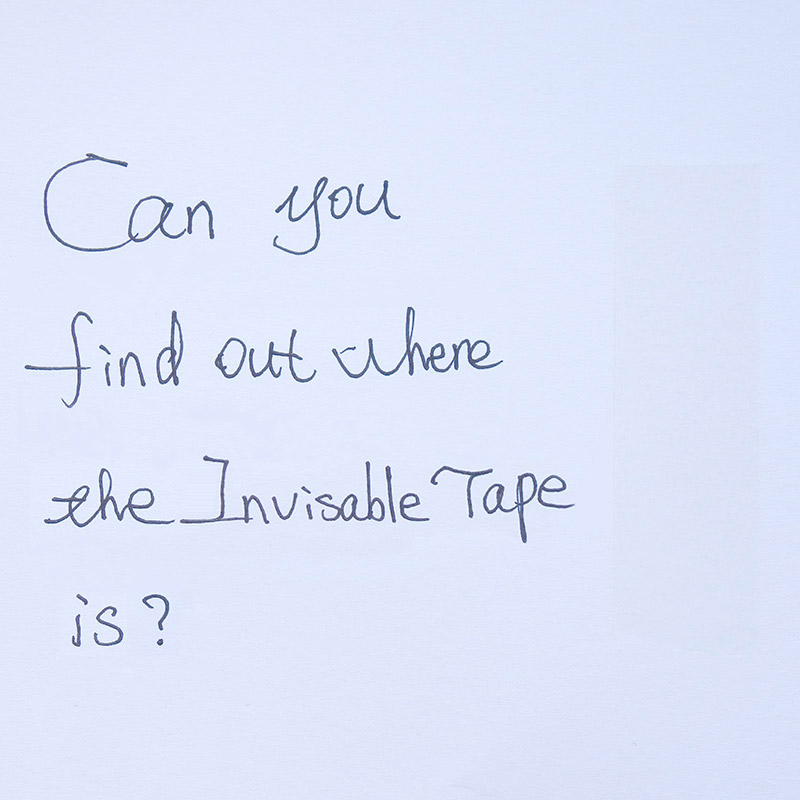 Can you
find out where
the Invisable Tape
is?